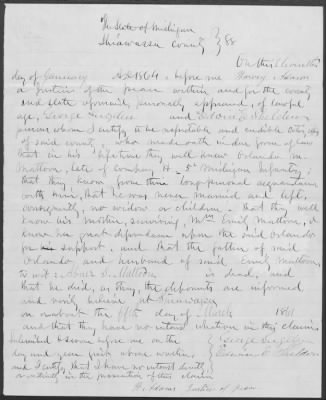 The State of Michigan
Shiawassee County } SS
On this Eleventh
day of January A.D. 1864, before me Harvey Adams
a Justice of the peace within and for the county
and state aforesaid, personally appeared, of lawful
age, George and Edwin E. Sheldon
persons whom I certify to be reputable and credible Citizens
of said county, who made oath in due form of law
that in his lifetime they well knew Orlando M.
Mattoon, late of company H - 5th Michigan Infantry;
that they know from their long personal acquaintance
with him, that he was never married and left,
consequently, no widow or children; that they well
know his Mother, surviving, Mrs. Mattoon, &
know her great dependence upon the said Orlando
for support, and that the father of said
Orlando, and husband of said Mattoon,
to wit: Abner D. Mattoon is dead, and
that he died, as they, the deponents are informed
and verily believe at Shiawassee
on or about the fifth day of March 1861
and that they have no interest whatever in this claim.
Subscribed & sworn before me on the
day and year first above written,
and I certify that I have no interest directly
or indirectly in the prosecution of this claim.
George
Edwin E. Sheldon
H. Adams Justice of peace